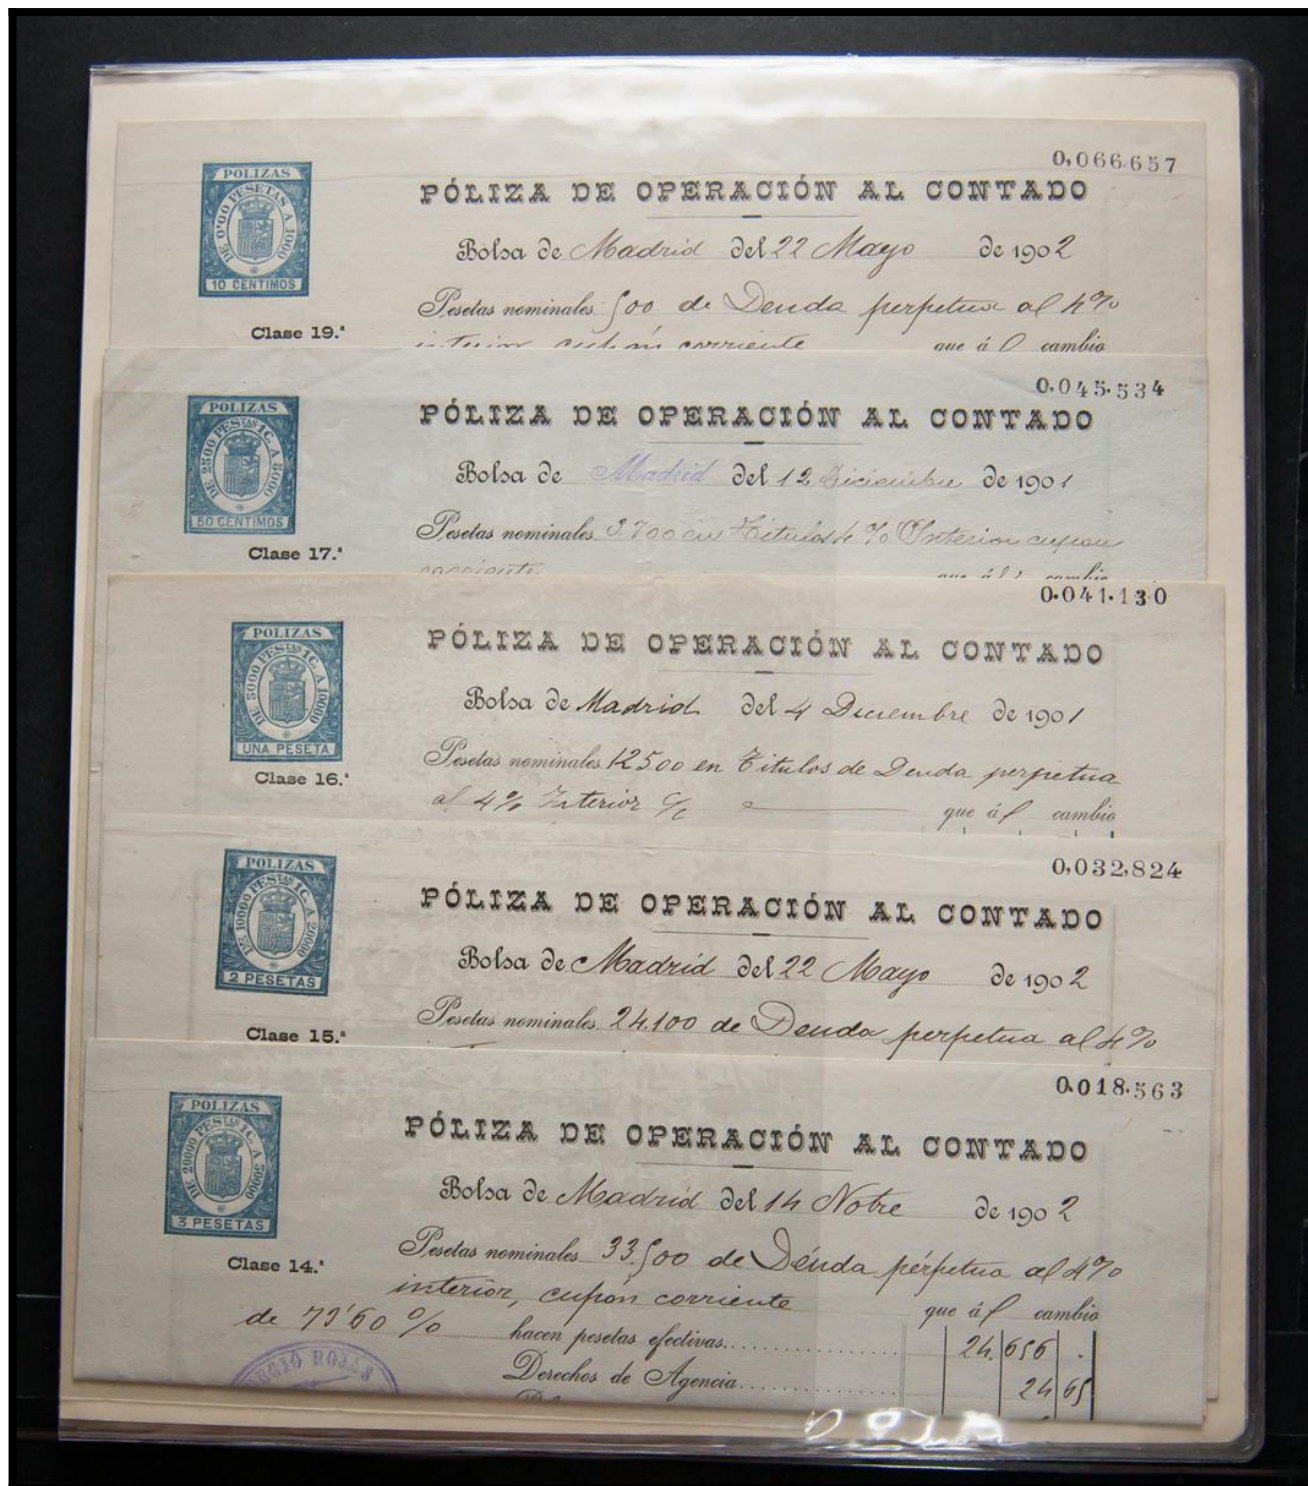 0,066.657
POLIZAS
DE 0'00 PESETAS A 1000
10 CENTIMOS
Clase 19.ª
PÓLIZA DE OPERACIÓN AL CONTADO
Bolsa de Madrid del 22 Mayo de 1902
Pesetas nominales 500 de Deuda perpetua al 4%
interior cupón corriente que á cambio
0.045.534
POLIZAS
DE 2500 PESTAS 1C. A 5000
50 CENTIMOS
Clase 17.ª
PÓLIZA DE OPERACIÓN AL CONTADO
Bolsa de Madrid del 12 Diciembre de 1901
Pesetas nominales 3.700 en Titulos 4% Interior cupon
corriente que á cambio
0.041.130
POLIZAS
DE 5000 PESTAS 1C. A 10000
UNA PESETA
Clase 16.ª
PÓLIZA DE OPERACIÓN AL CONTADO
Bolsa de Madrid del 4 Diciembre de 1901
Pesetas nominales 12500 en Titulos de Deuda perpetua
al 4% Interior c/c que á cambio
0,032,824
POLIZAS
DE 10000 PESTAS 1C. A 20000
2 PESETAS
Clase 15.ª
PÓLIZA DE OPERACIÓN AL CONTADO
Bolsa de Madrid del 22 Mayo de 1902
Pesetas nominales 24.100 de Deuda perpetua al 4%
0.018.563
POLIZAS
DE 20000 PESTAS 1C. A 50000
3 PESETAS
Clase 14.ª
PÓLIZA DE OPERACIÓN AL CONTADO
Bolsa de Madrid del 14 Nobre de 1902
Pesetas nominales 33.500 de Déuda pérpetua al 4%
interior, cupón corriente que á cambio
de 73'60 % hacen pesetas efectivas 24.656 .
Derechos de Agencia 24 65
ROJAS